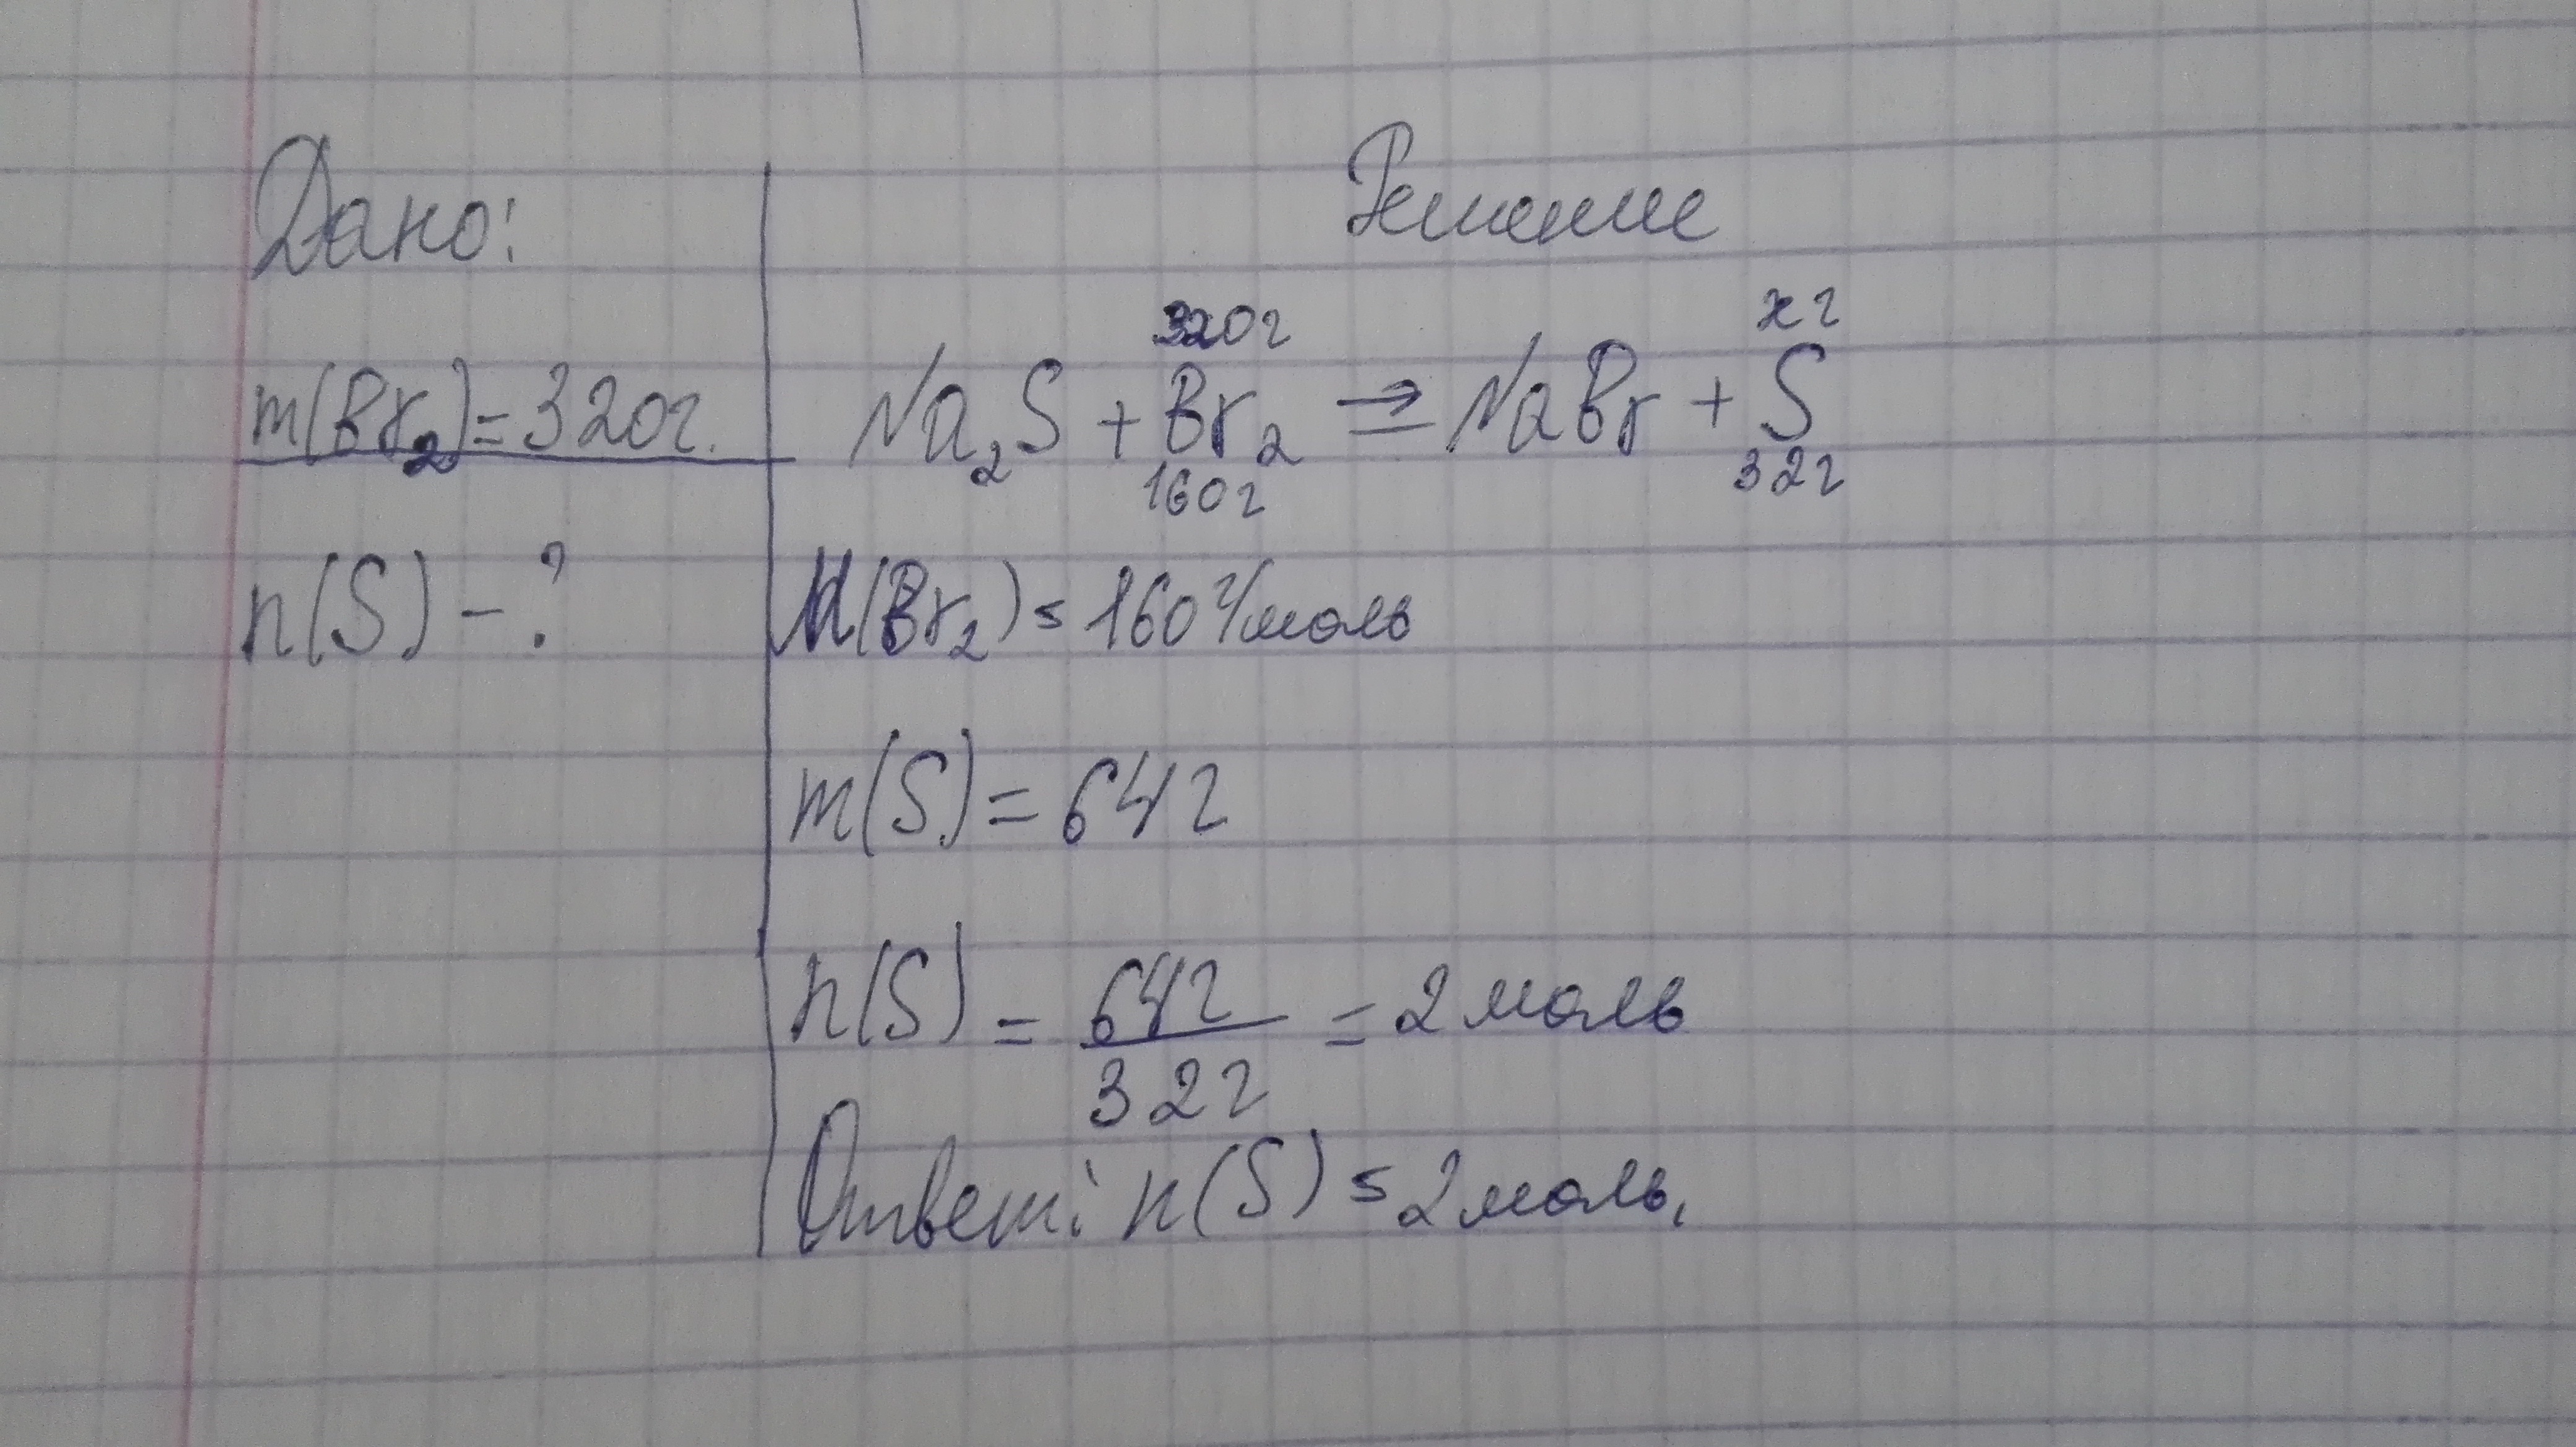 Дано:
m(Br₂)=320г.
n(S) - ?
Решение
320г хг
Na₂S + Br₂ ⇒ NaBr + S
160г 32г
M(Br₂) = 160 г/моль
m(S) = 64г
n(S) = 64г = 2 моль
32г
Ответ: n(S) = 2 моль.